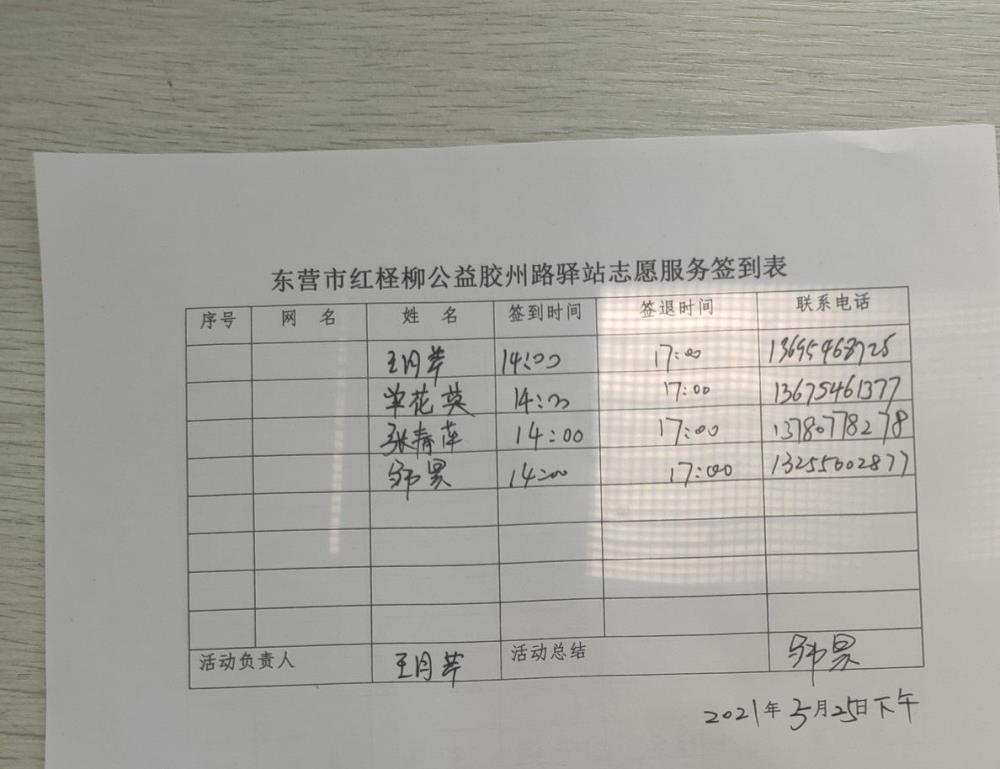 东营市红柽柳公益胶州路驿站志愿服务签到表
序号 网 名 姓 名 签到时间 签退时间 联系电话
王月芹 14:00 17:00 13695468725
单花英 14:00 17:00 13675461377
张春萍 14:00 17:00 13780778278
郭昊 14:00 17:00 13255602877
活动负责人 王月芹 活动总结 郭昊
2021年3月25日下午